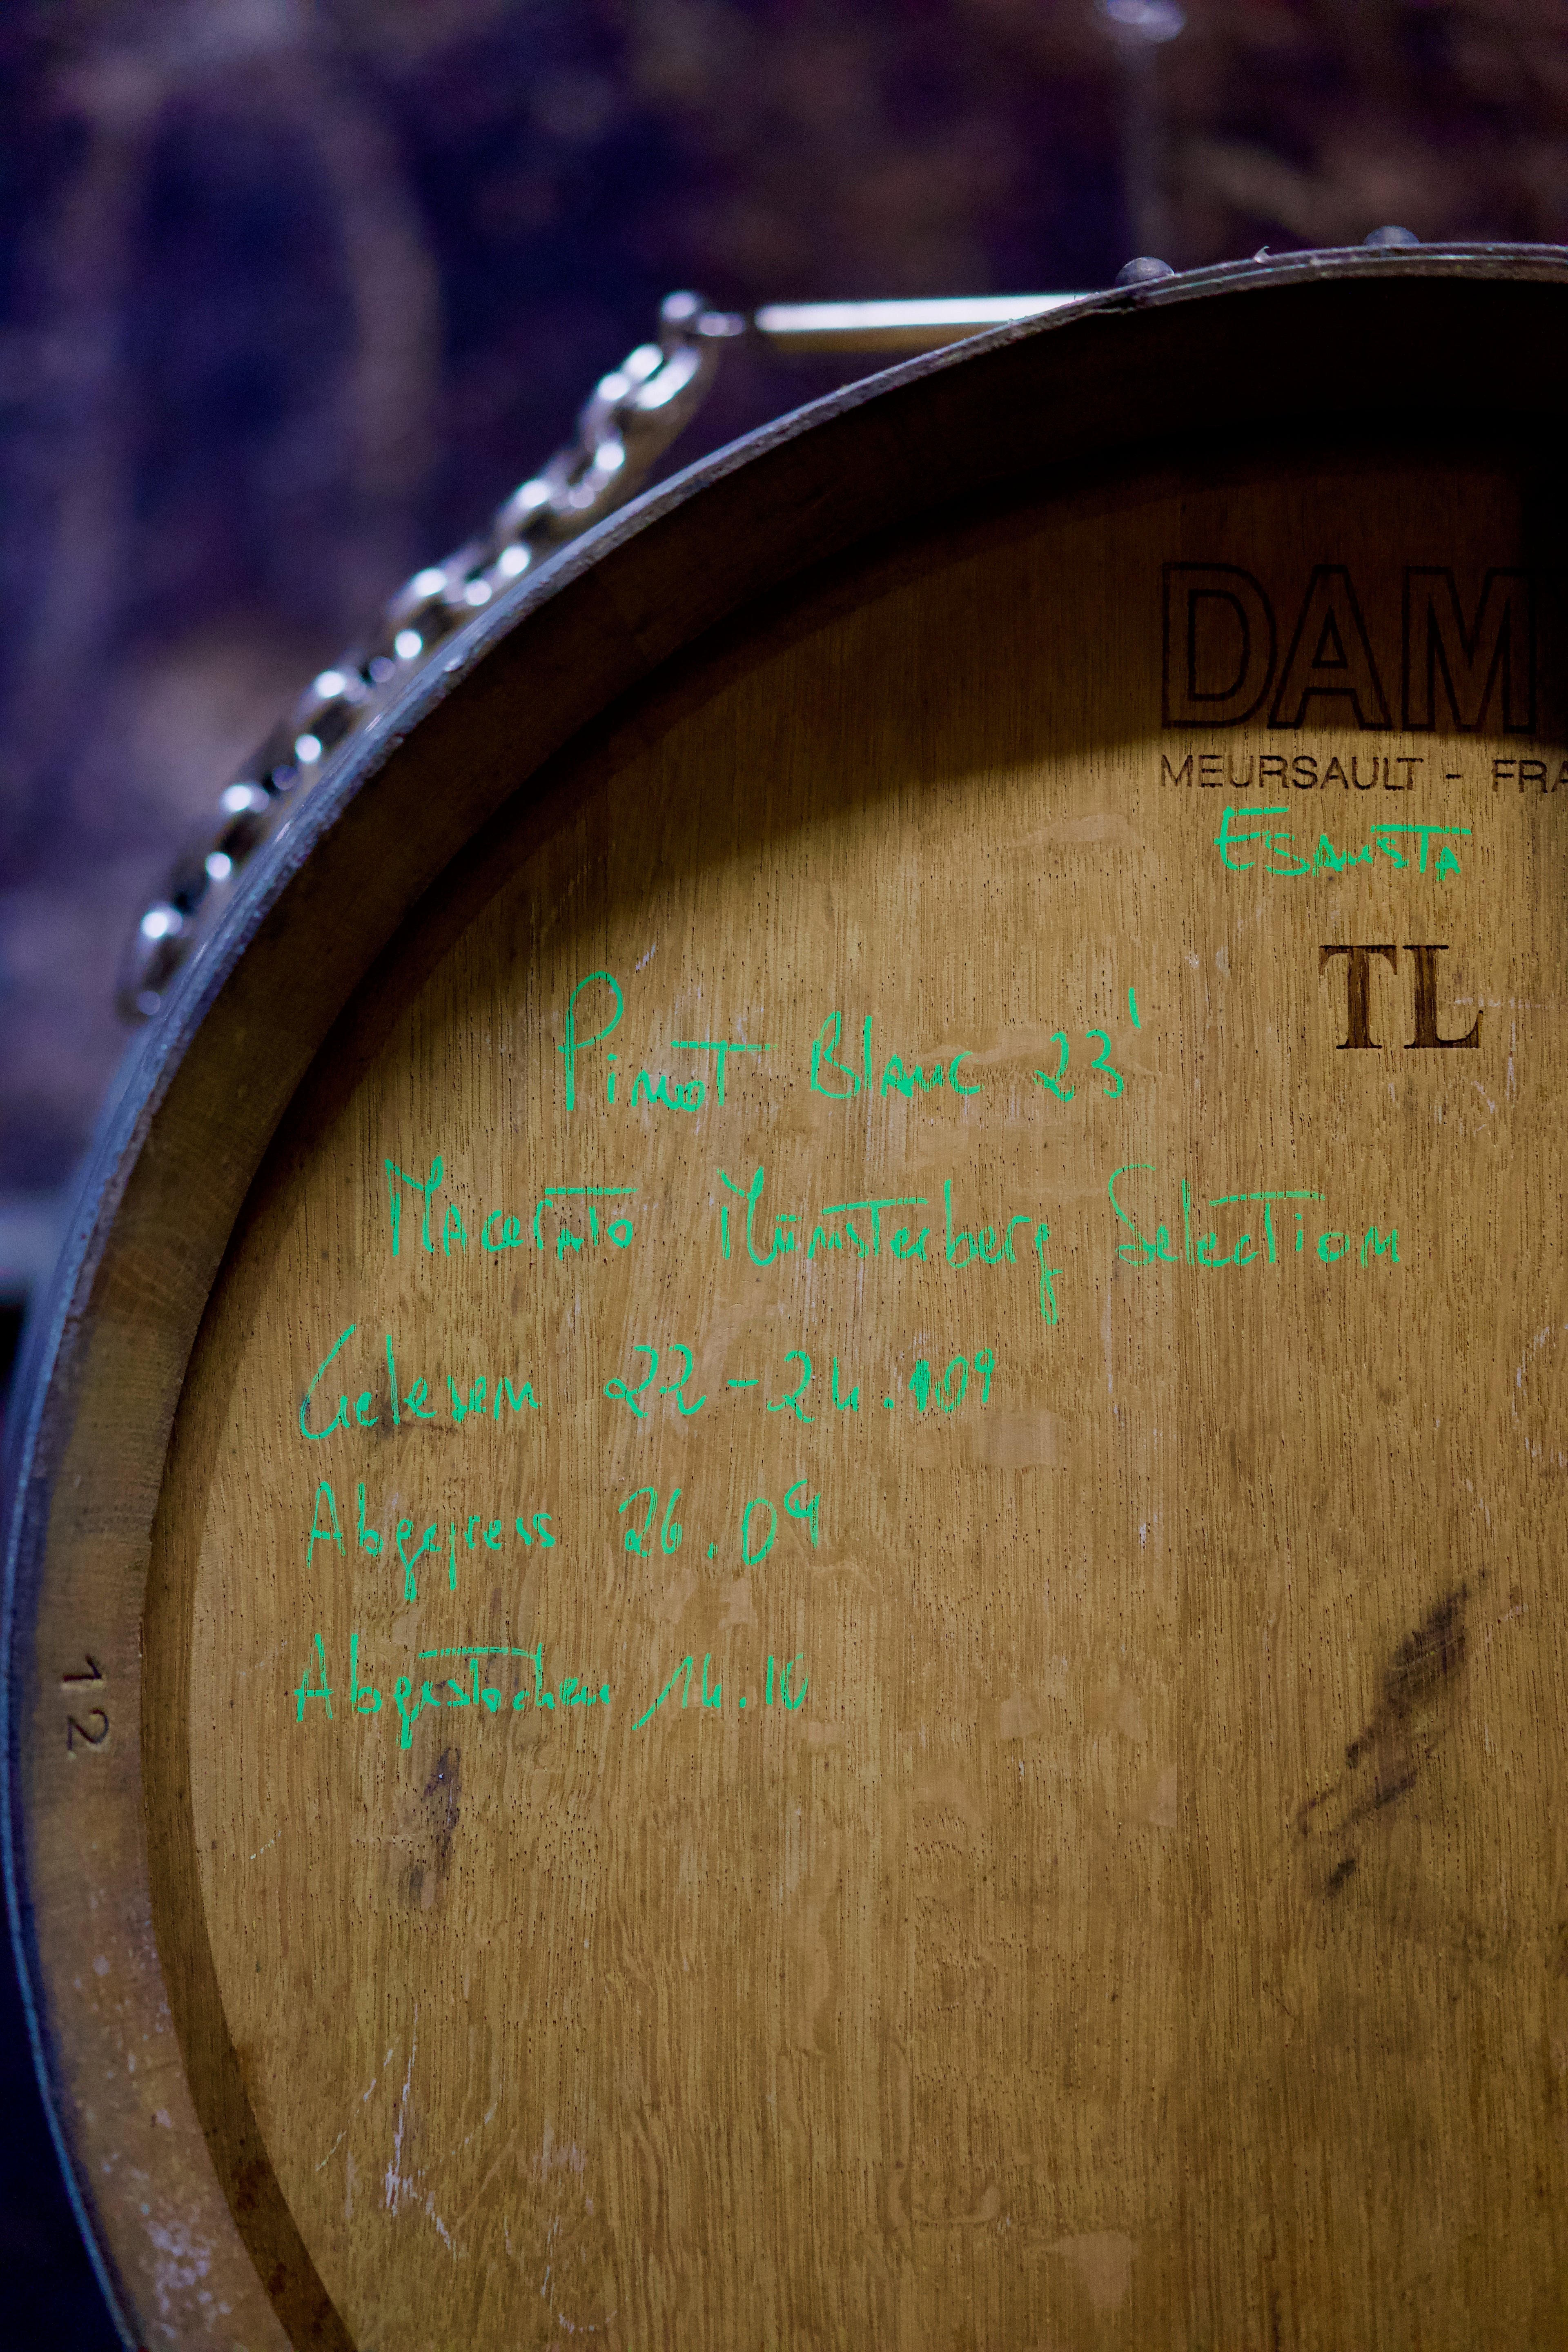 DAM
MEURSAULT - FRA
Esausta
TL
Pinot Blanc 23'
Macerato Münsterberg Selection
Gelesen 22-24.09
Abgepress 26.09
Abgestochen 14.10
12